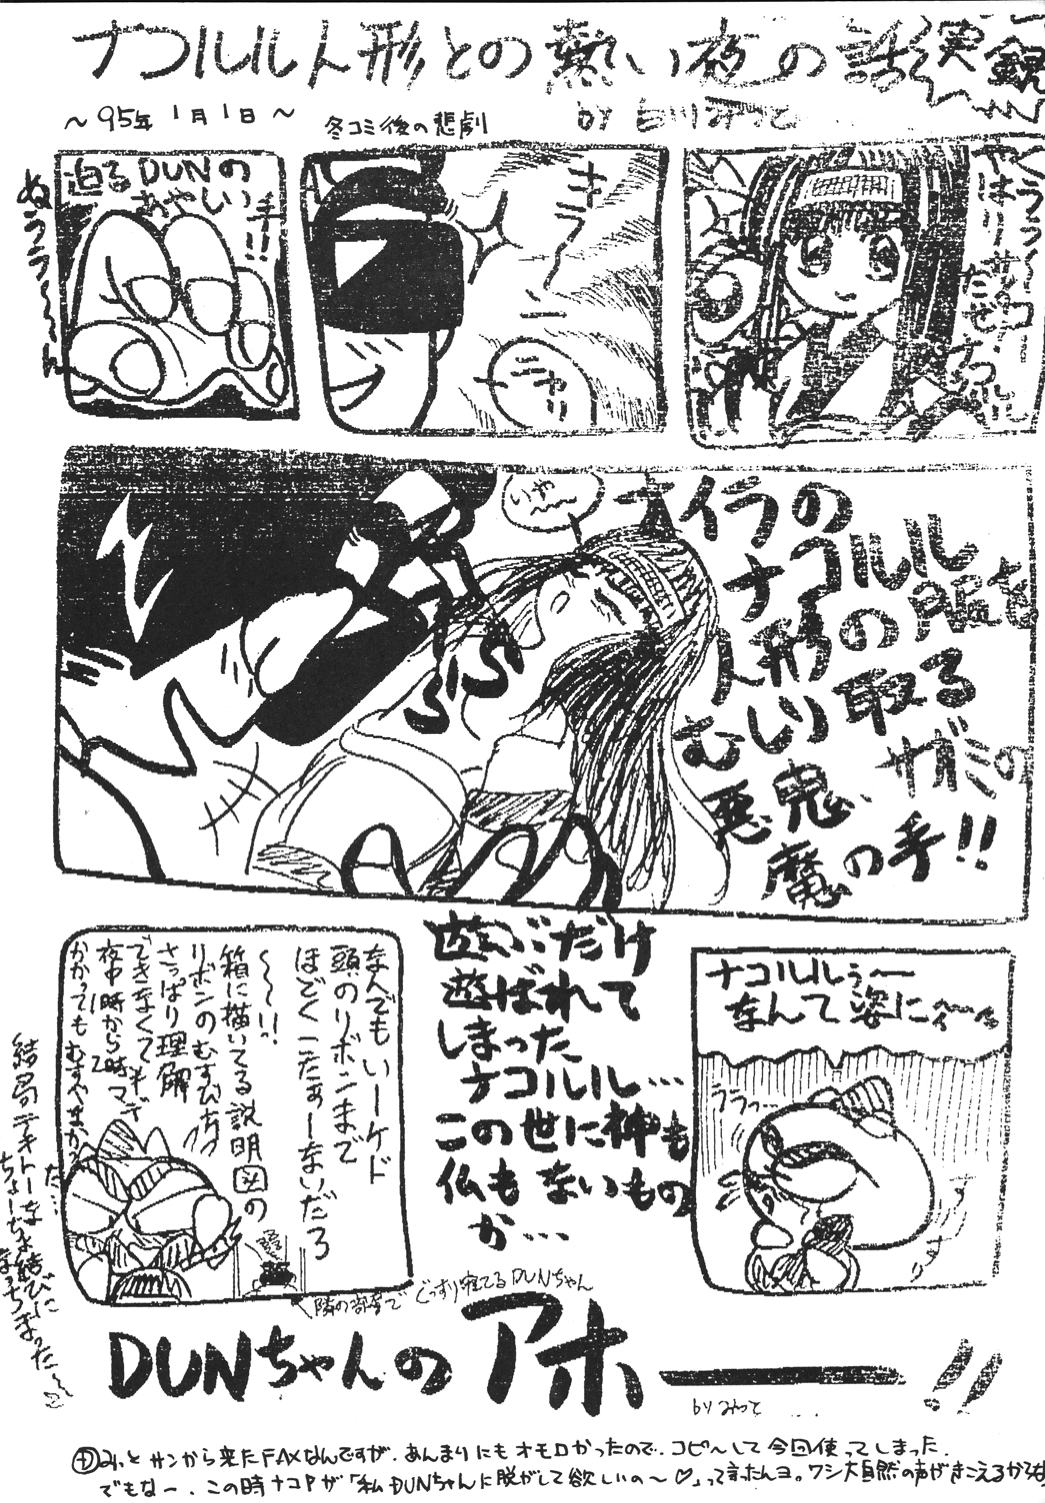 ナコルル人形との熱い夜の話
実録
～95年1月1日～
冬コミ後の悲劇
by 白川みつと
クララっ～
やはりサムスピはナコルル
キラーン
ニヤリ
迫るDUNの
あやしい手!!
ぬララ～ん
いや～
ナイラの
ナコルル
人形の服を
むしり取る
悪鬼、サガミの
魔の手!!
ナコルルぅ～
なんて姿に～
ララっ…
遊ぶだけ
遊ばれて
しまった
ナコルル…
この世に神も
仏もないもの
か…
なんでもいーケド
頭のリボンまで
ほどくこたぁーないだろ
～～!!
箱に描いてる説明図の
リボンのむすびち
さっぱり理解
できなくて
夜中11時から2時マデ
かかってもむすべまか
結局テキトーな結びに
ちょーちょ結びに
なっちまった～
隣の部屋でぐっすり寝てるDUNちゃん
DUNちゃんのアホ――!!
by みつと
みっとサンから来たFAXなんですが、あんまりにもオモロかったので、コピ～して今回使ってしまった。
でもなー、この時ナコPが「私DUNちゃんに脱がして欲しいの～♡」って言ったんヨ。ワシ大自然の声がきこえるからな